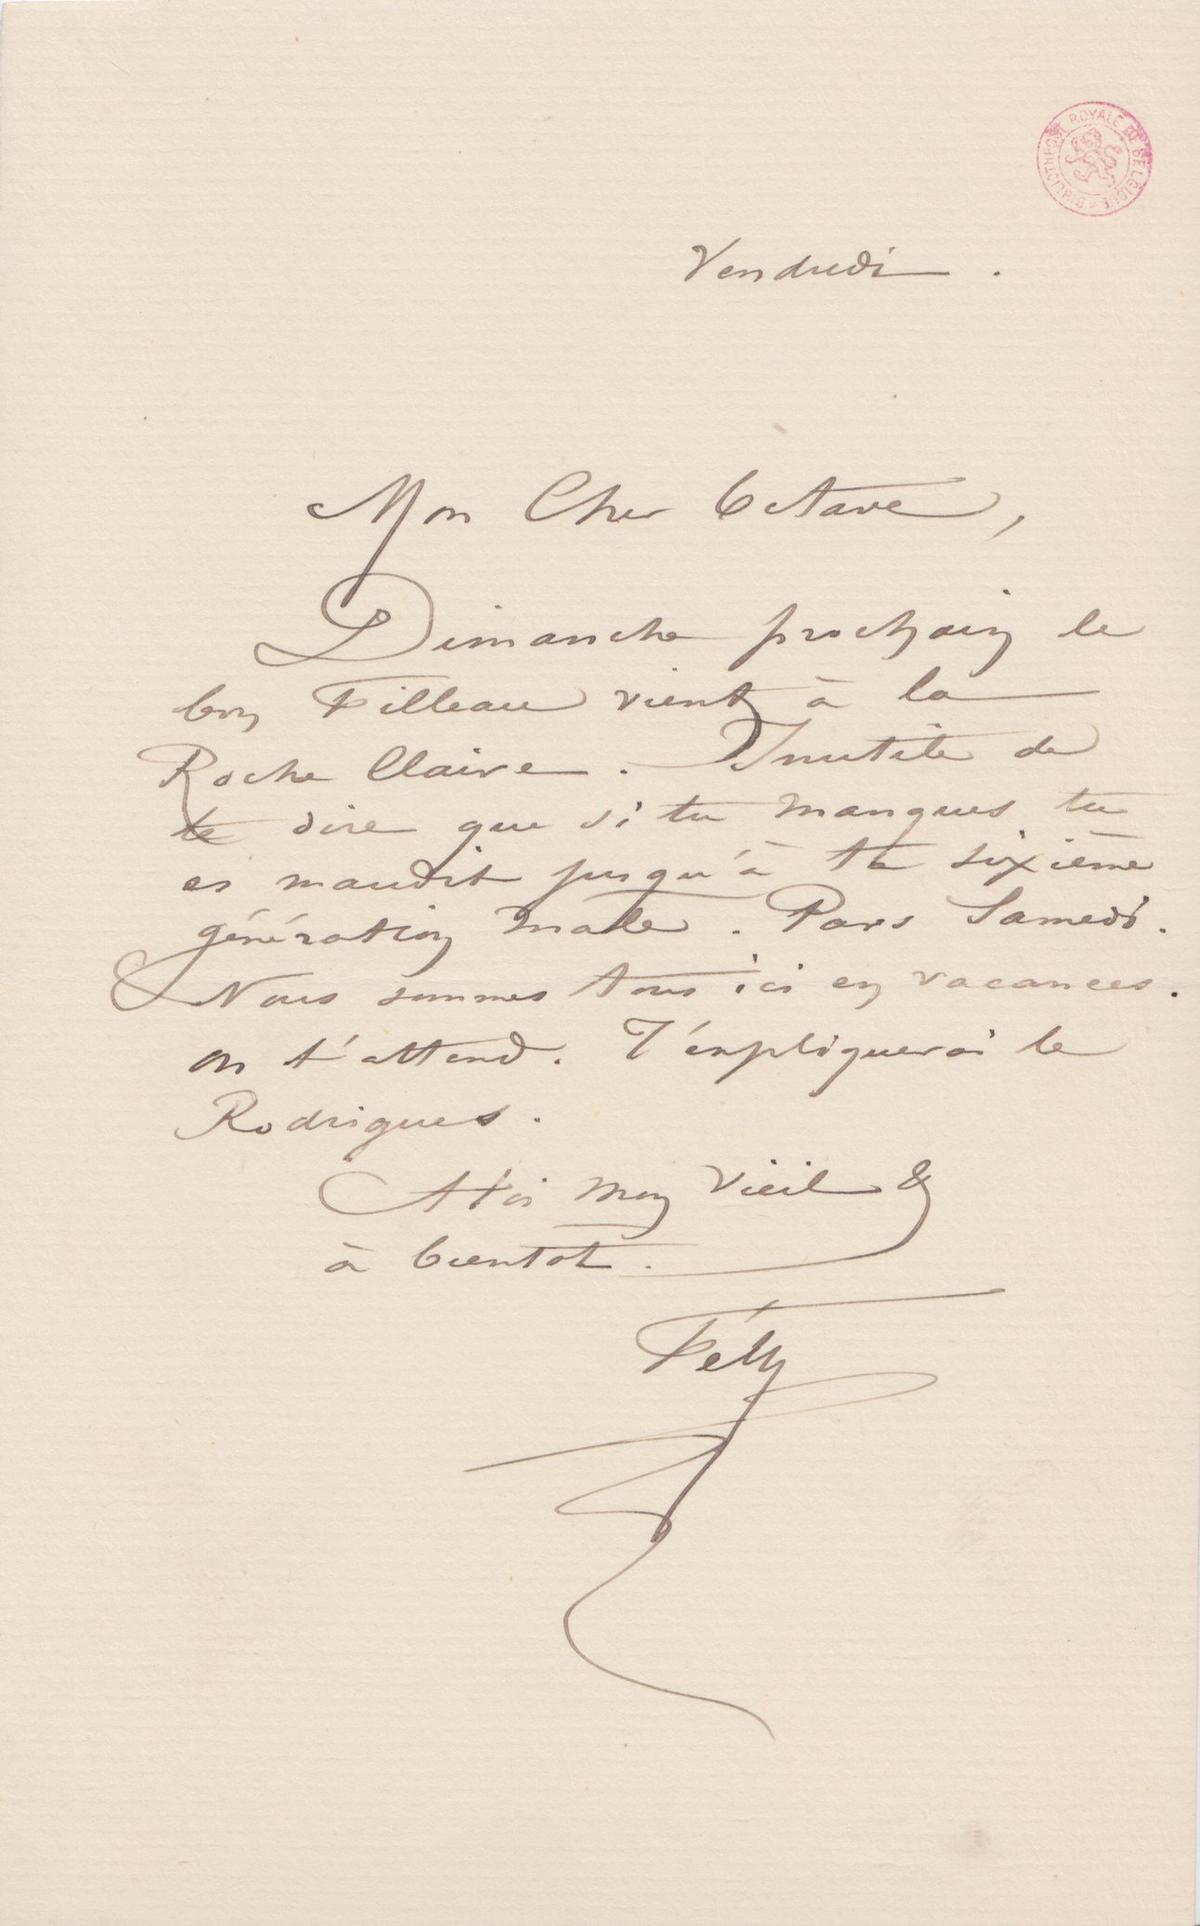 BIBLIOTHÈQUE ROYALE DE BELGIQUE
Vendredi .
Mon Cher Octave,
Dimanche prochain le
bon Filleau vient à la
Roche Claire . Inutile de
te dire que si tu manques tu
es maudit jusqu'à ta sixième
génération male . Pars Samedi .
Nous sommes tous ici en vacances .
on t'attend . T'expliquerai le
Rodrigues .
A toi mon vieil &
à bientot .
Fély